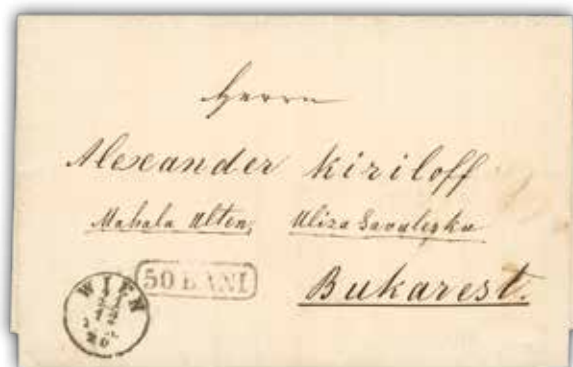 Herrn
Alexander Kiriloff
Mahala Olten, Uliza Savaleska
Bukarest.
50 BANI
WIEN